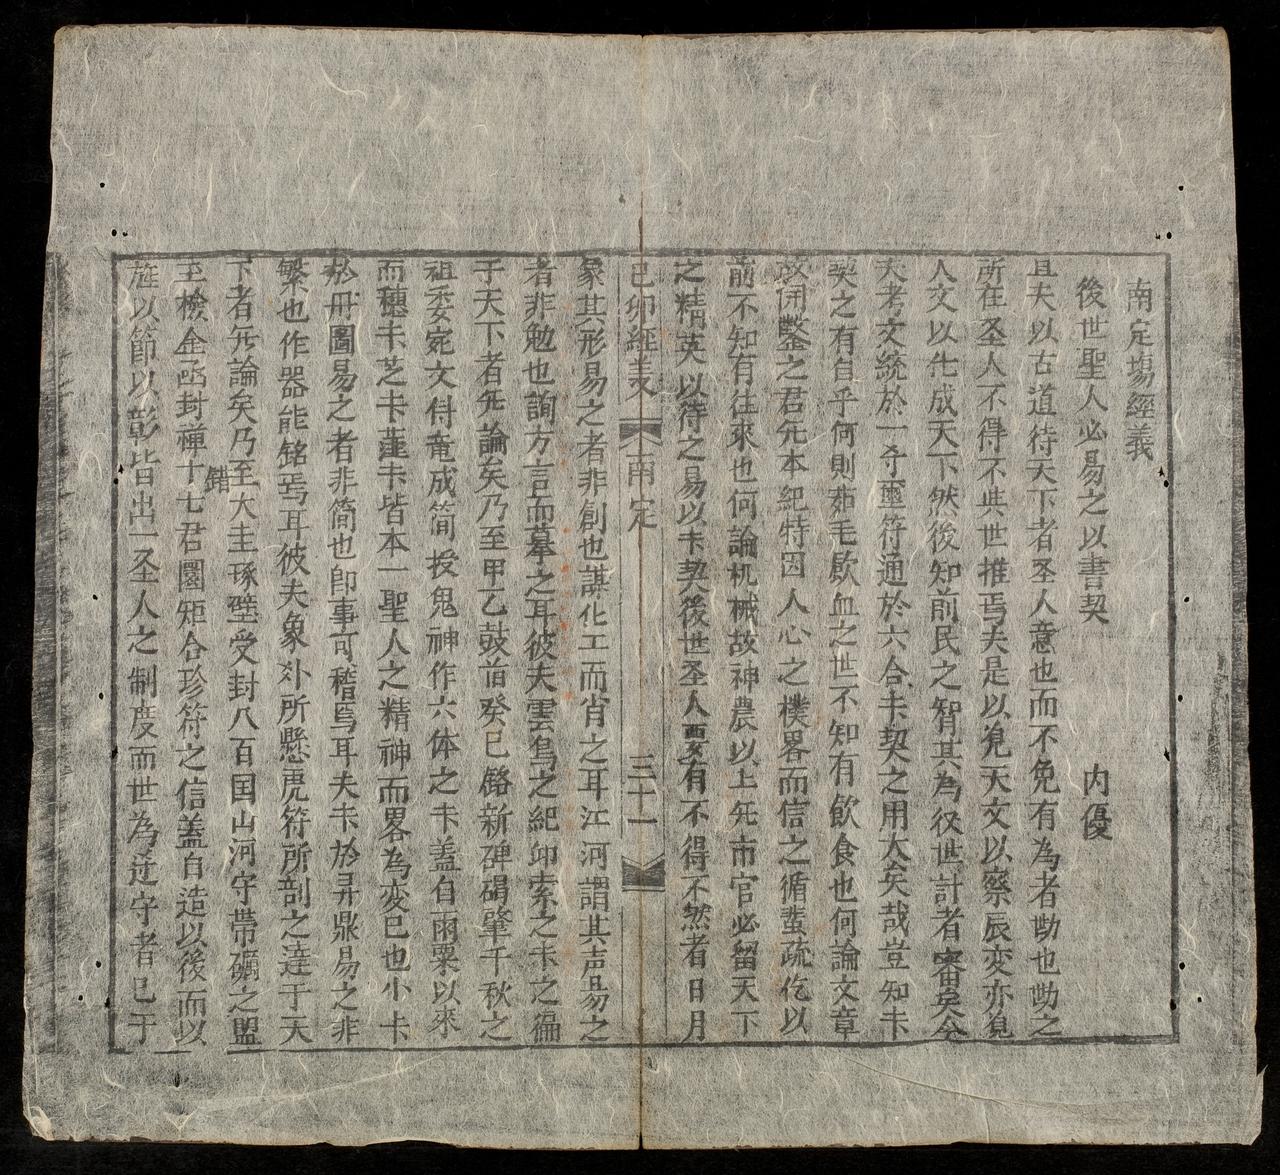 南定塲經義
後世聖人必易之以書契 内優
且夫以古道待天下者圣人意也而不免有為者勢也勢之
所在圣人不得不与世推焉夫是以覌天文以察辰変亦覌
人文以化成天下然後知前民之智其為後世計者審矣今
夫考文統於一
契之有自乎何則茹毛飲血之世不知有飲食也何論文章
故開鑿之君无本紀特因人心之樸畧而信之循蜚疏仡以
前不知有往來也何論机械故神農以上无市官必留天下
之精英以待之易以契後世圣人要有不得不然者日月
象其形易之者非創也謀化工而肖之耳江河謂其声易之
者非勉也詢方言而摹之耳彼夫雲鳥之紀卯索之之徧
于天下者无論矣乃至甲乙鼓首癸巳路新碑碣肇千秋之
祖委宛文付竜成简授鬼神作六体之盖自雨粟以來
而穗芝薤皆本一聖人之精神而畧為変已也小
於冊圖易之者非简也即事可稽焉耳夫於彛鼎易之非
繁也作器能銘焉耳彼夫象外所懸虎符所剖之達于天
下者无論矣乃至大圭琢璧受封八百国山河守帶礪之盟
玉檢金函封禅十七君圜矩合珍符之信盖自造以後而以
旌以節以彰皆出一圣人之制度而世為近守者已于
錯
己卯經義
南定
三十一